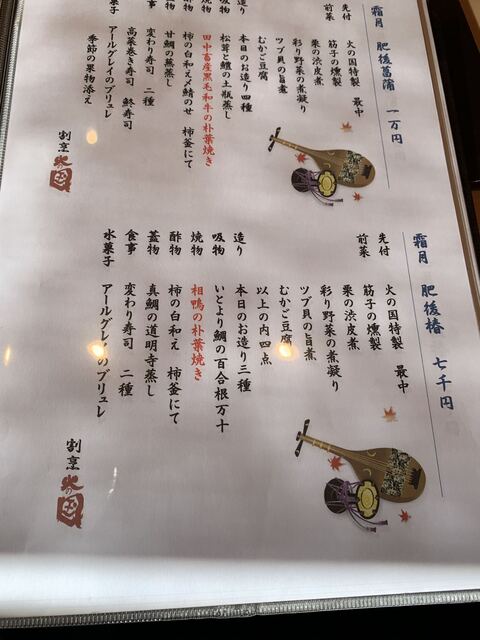 霜月 肥後菖蒲 一万円
先付 火の国特製 最中
前菜 筋子の燻製
栗の渋皮煮
彩り野菜の煮凝り
ツブ貝の旨煮
むかご豆腐
造り 本日のお造り四種
吸物 松茸と鱧の土瓶蒸し
焼物 田中畜産黒毛和牛の朴葉焼き
酢物 柿の白和え〆鯖のせ 柿釜にて
蓋物 甘鯛の蕪蒸し
食事 変わり寿司 二種
高菜巻き寿司 鮗寿司
水菓子 アールグレイのブリュレ
季節の果物添え
割烹
霜月 肥後椿 七千円
先付 火の国特製 最中
前菜 筋子の燻製
栗の渋皮煮
彩り野菜の煮凝り
ツブ貝の旨煮
むかご豆腐
以上の内四点
造り 本日のお造り三種
吸物 いとより鯛の百合根万十
焼物 相鴨の朴葉焼き
酢物 柿の白和え 柿釜にて
蓋物 真鯛の道明寺蒸し
食事 変わり寿司 二種
水菓子 アールグレイのブリュレ
割烹